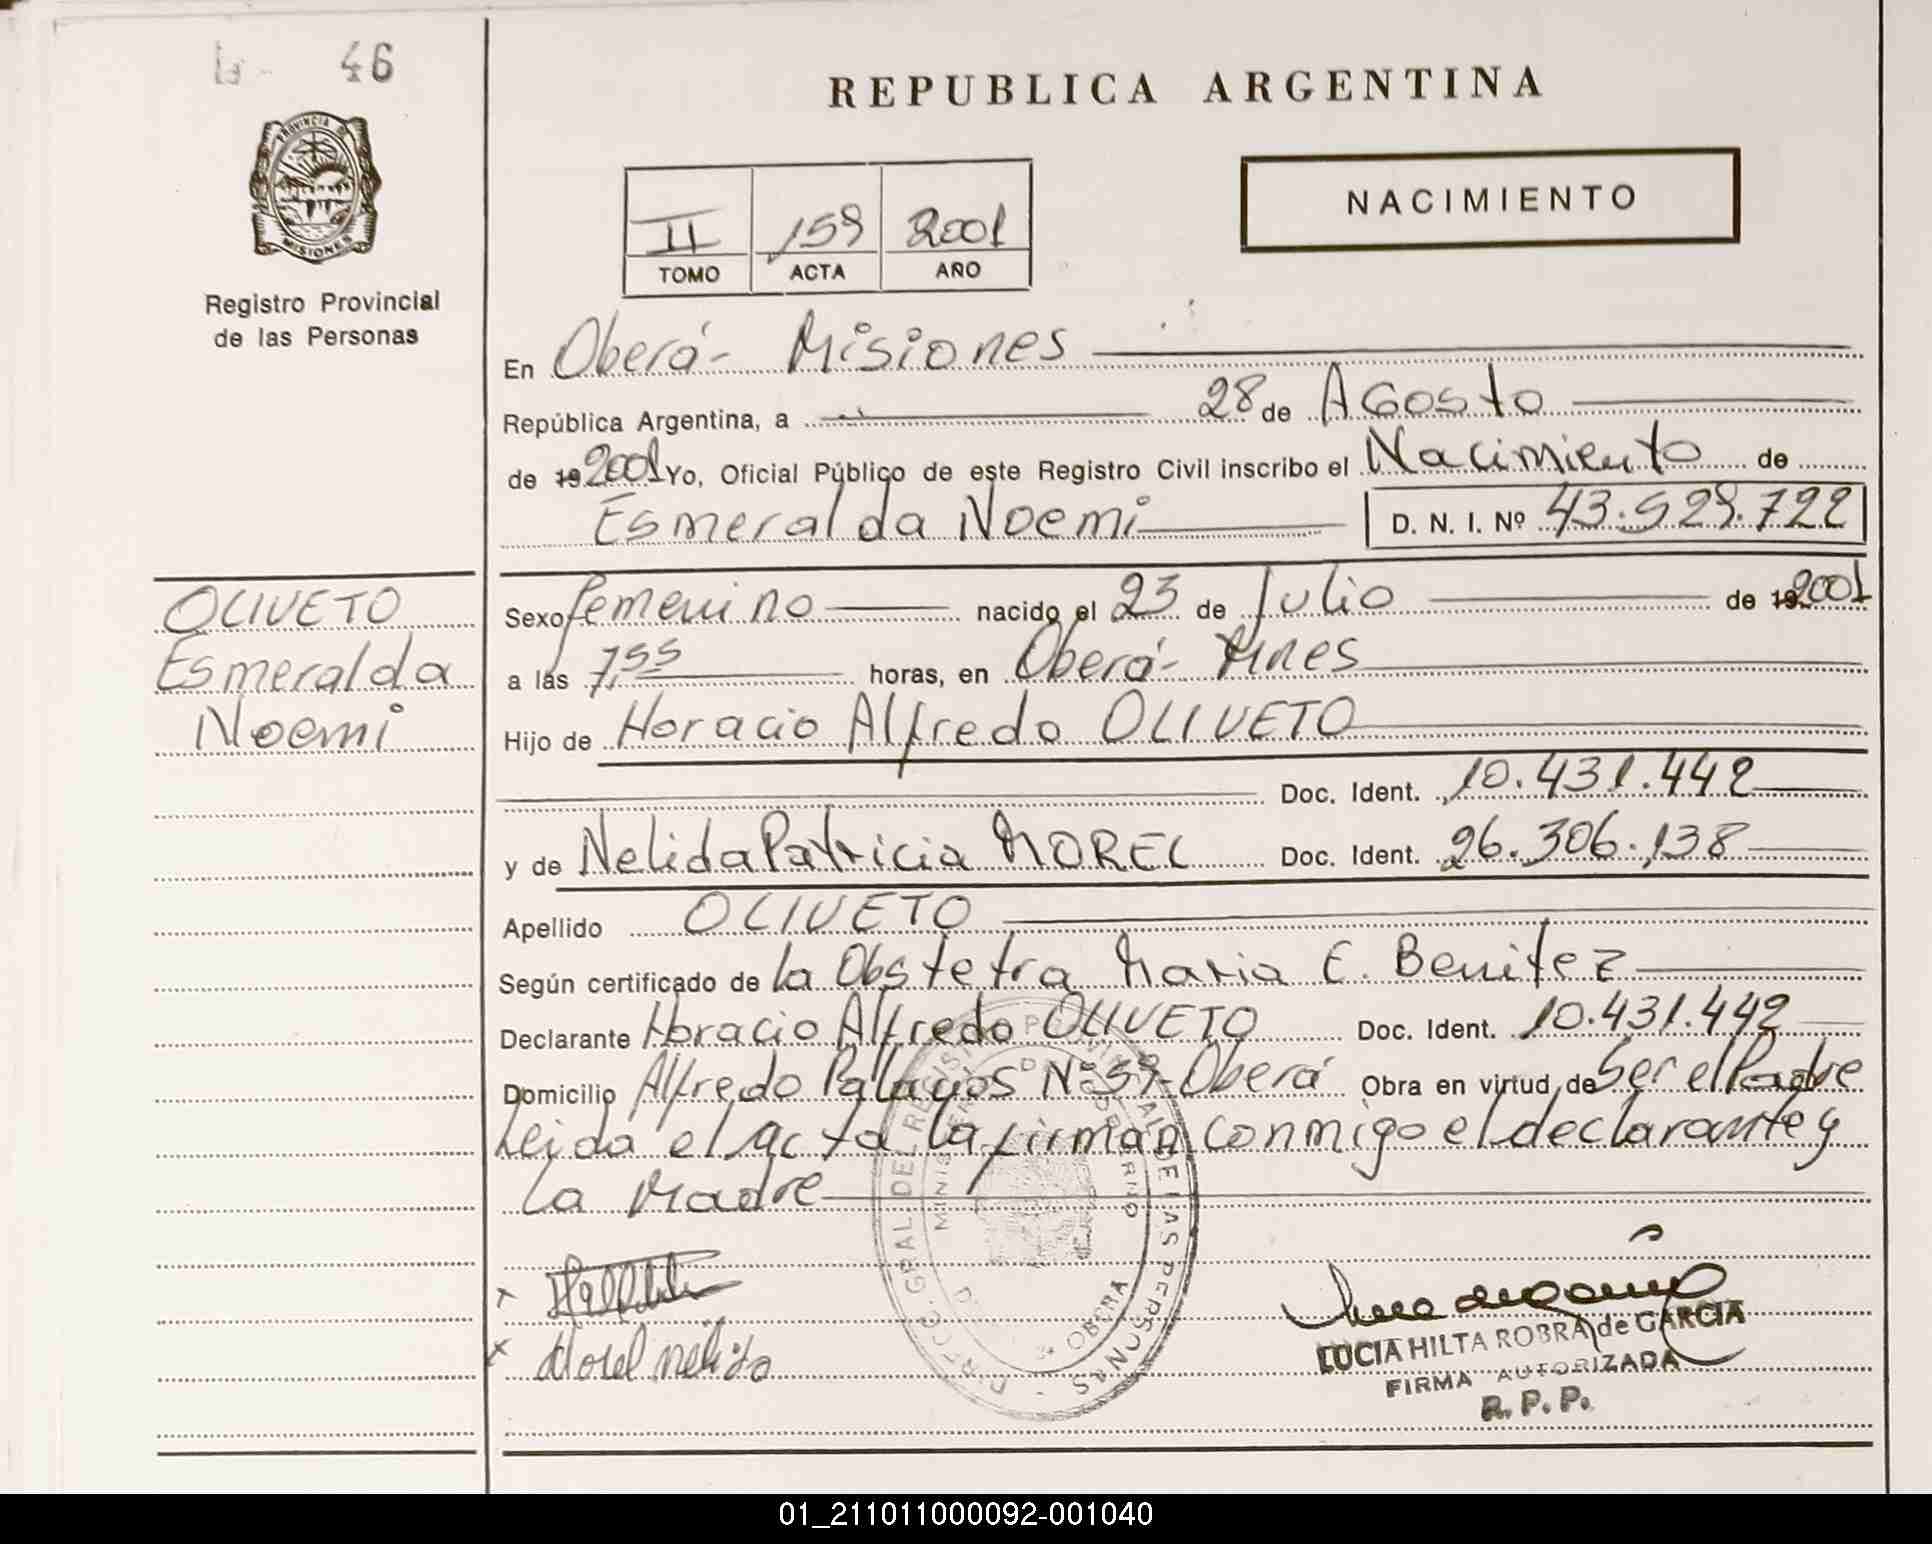 46
REPUBLICA ARGENTINA
PROVINCIA DE
MISIONES
Registro Provincial
de las Personas
II 159 2001
TOMO ACTA AÑO
NACIMIENTO
En Oberá- Misiones
República Argentina, a 28 de Agosto
de 19 2001 Yo, Oficial Público de este Registro Civil inscribo el Nacimiento de
Esmeralda Noemi D. N. I. Nº 43.529.722
OLIVETO
Esmeralda
Noemi
Sexo femenino nacido el 23 de Julio de 19 2001
a las 7,55 horas, en Oberá- Mnes
Hijo de Horacio Alfredo OLIVETO
Doc. Ident. 10.431.442
y de Nelida Patricia MOREL Doc. Ident. 26.306.138
Apellido OLIVETO
Según certificado de la Obstetra Maria E. Benitez
Declarante Horacio Alfredo OLIVETO Doc. Ident. 10.431.442
Domicilio Alfredo Palacios Nº 59- Oberá Obra en virtud de Ser el Padre
Leida el acta la firman conmigo el declarante y
la Madre
DIRECC. GRAL. DEL REGISTRO PROVINCIAL DE LAS PERSONAS
OBERA
Morel nelida
LUCIA HILTA ROBRA de GARCIA
FIRMA AUTORIZADA
R. P. P.
01_211011000092-001040